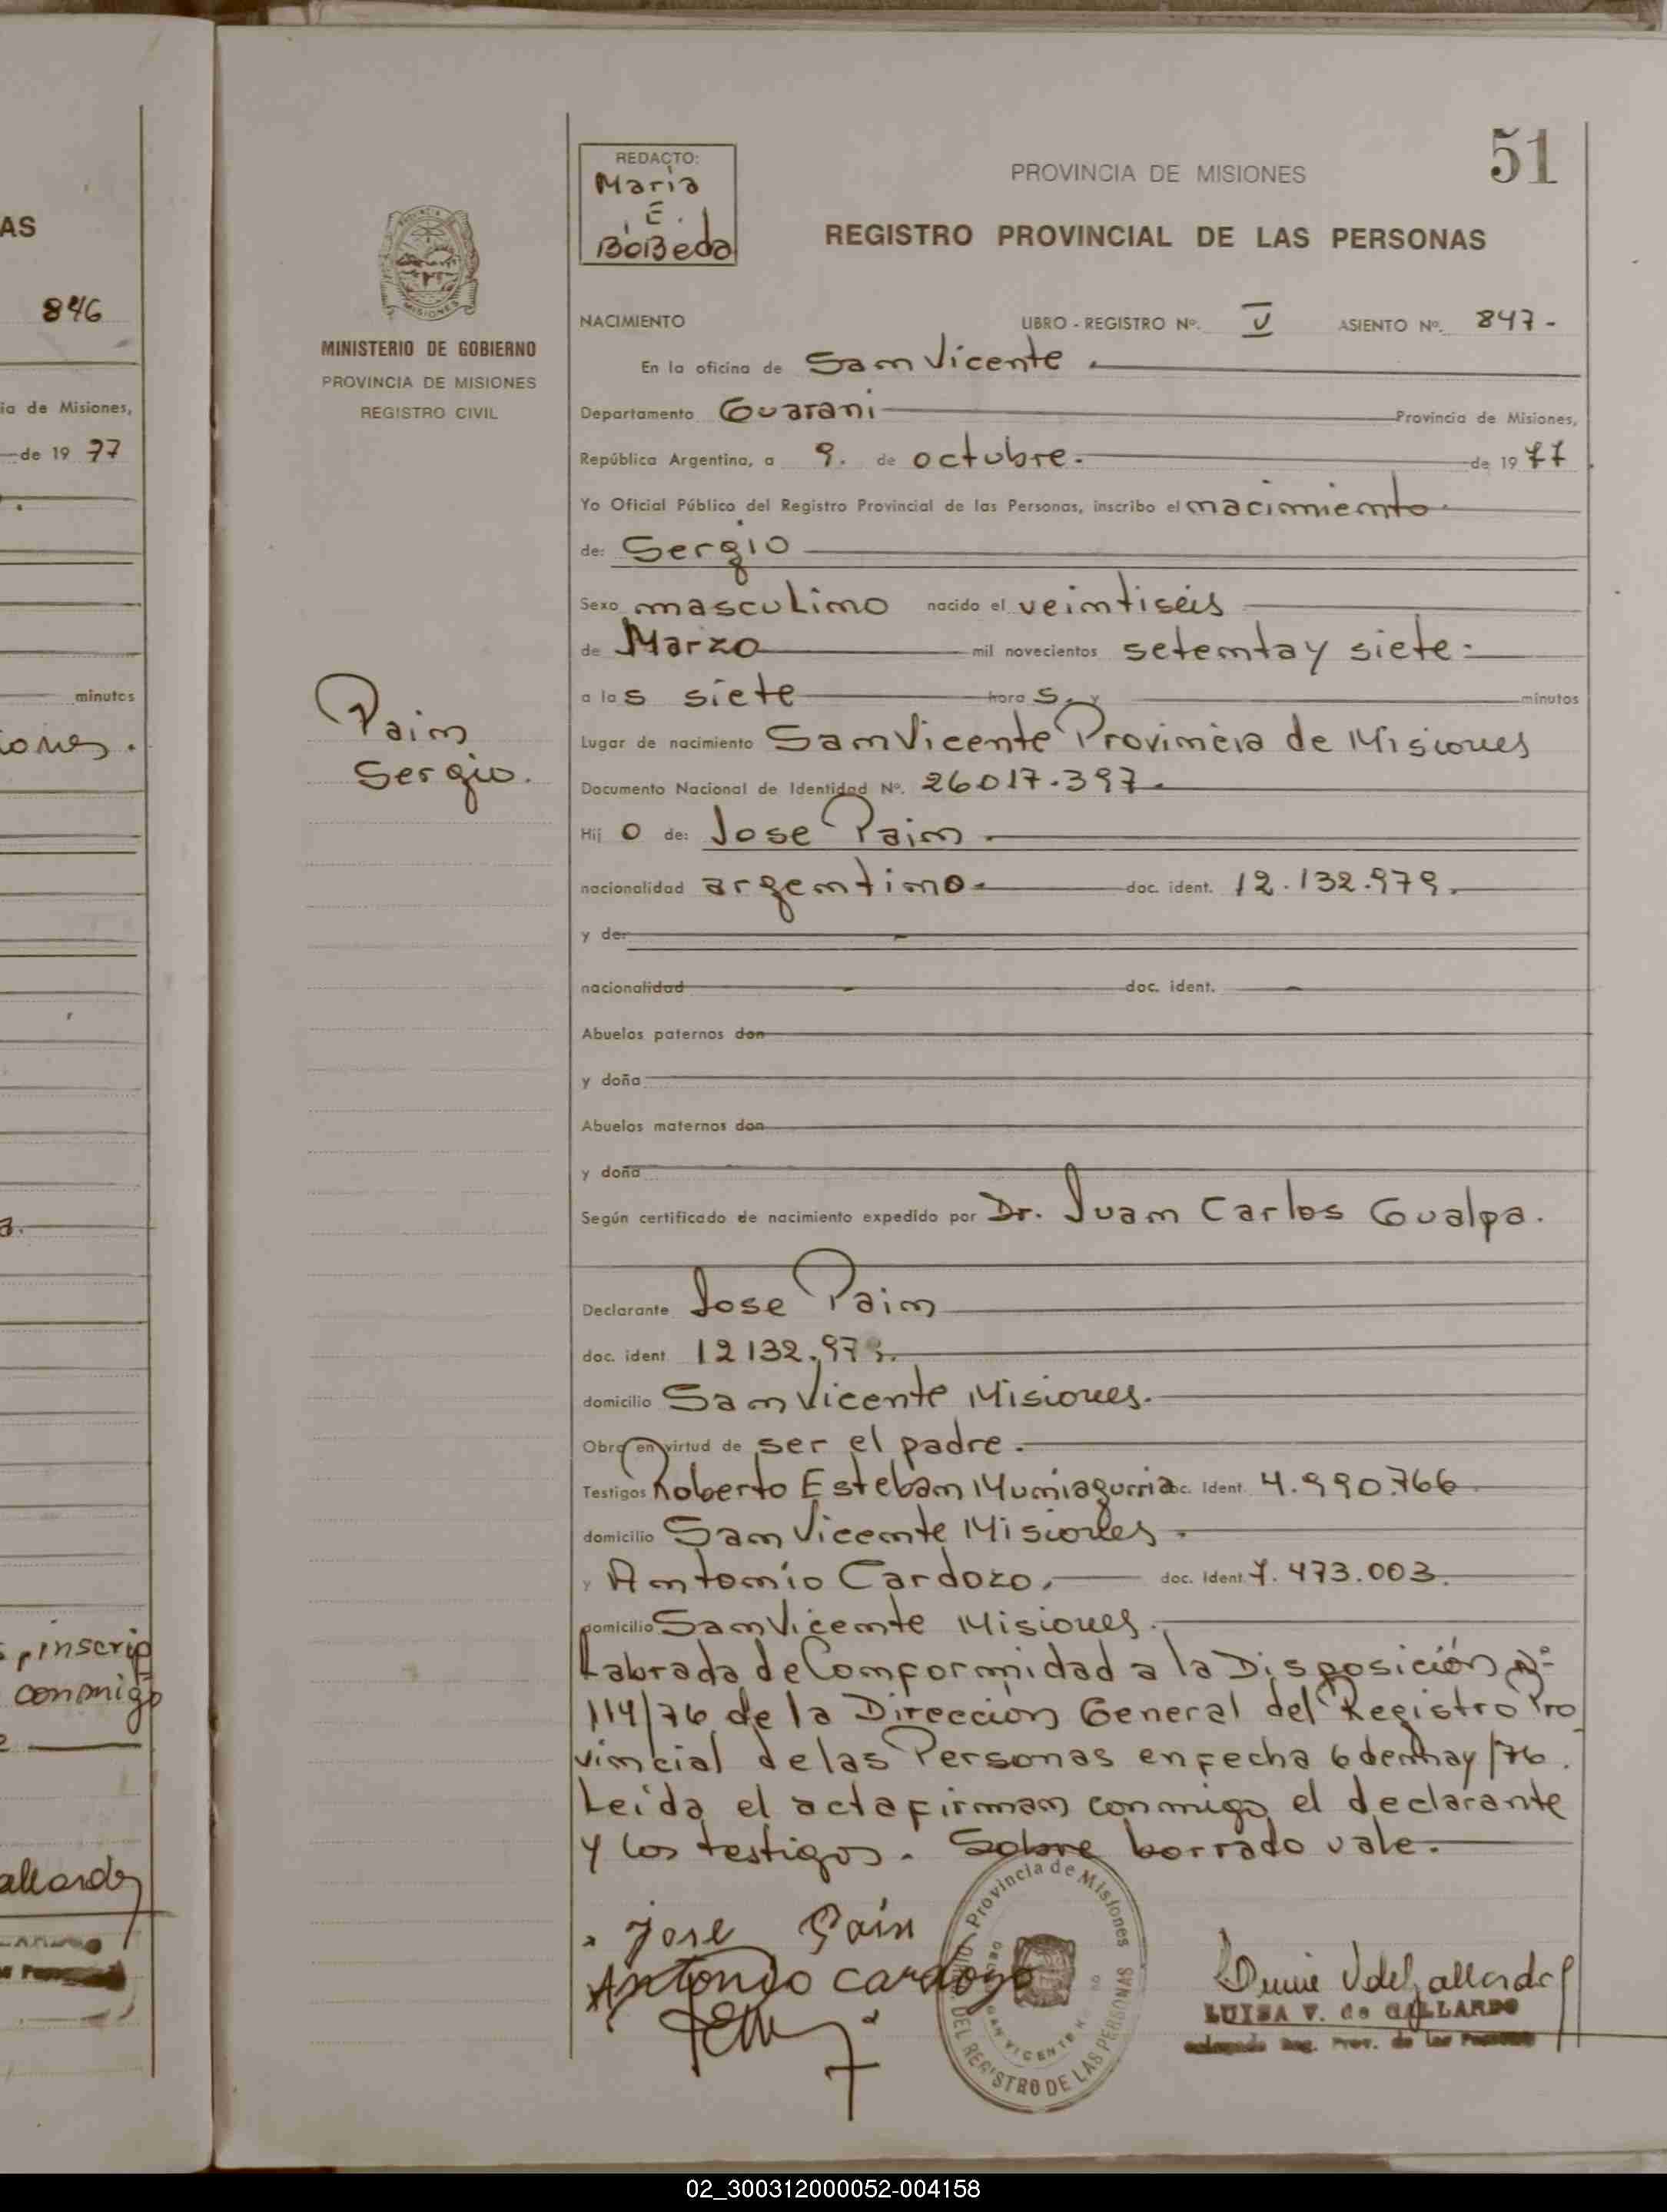 AS
846
ia de Misiones,
de 19 77
minutos
iones.
a.
s, inscrip
conmigo
allardo
51
REDACTO:
Maria
E.
BoBeda
PROVINCIA DE MISIONES
REGISTRO PROVINCIAL DE LAS PERSONAS
MISIONES
MINISTERIO DE GOBIERNO
PROVINCIA DE MISIONES
REGISTRO CIVIL
NACIMIENTO LIBRO - REGISTRO Nº. V ASIENTO Nº. 847-
En la oficina de San Vicente.
Departamento Guarani Provincia de Misiones,
República Argentina, a 9. de octubre. de 19 77
Yo Oficial Público del Registro Provincial de las Personas, inscribo el nacimiento
de: Sergio
Sexo masculino nacido el veintiséis
de Marzo mil novecientos setenta y siete.
a las siete horas. y minutos
Paim
Sergio.
Lugar de nacimiento San Vicente Provincia de Misiones
Documento Nacional de Identidad Nº. 26017.397.
Hijo de: Jose Paim.
nacionalidad argentino. doc. ident. 12.132.979.
y de:
nacionalidad doc. ident.
Abuelos paternos don
y doña
Abuelos maternos don
y doña
Según certificado de nacimiento expedido por Dr. Juan Carlos Gualpa.
Declarante Jose Paim
doc. ident 12132.979.
domicilio San Vicente Misiones.
Obra en virtud de ser el padre.
Testigos Roberto Esteban Muniagurria doc. Ident. 4.990.766
domicilio San Vicente Misiones.
y Antonio Cardozo, doc. Ident. 7.473.003.
domicilio San Vicente Misiones.
Labrada de Conformidad a la Disposición Nº
114/76 de la Dirección General del Registro Pro
vincial de las Personas en fecha 6 de may/76.
Leida el acta firman conmigo el declarante
y los testigos. Sobre borrado vale.
Jose Pain
Antonio Cardozo
Provincia de Misiones
DEL REGISTRO DE LAS PERSONAS
SAN VICENTE
LUISA V. de GALLARDO
Delegada Reg. Prov. de las Personas
02_300312000052-004158